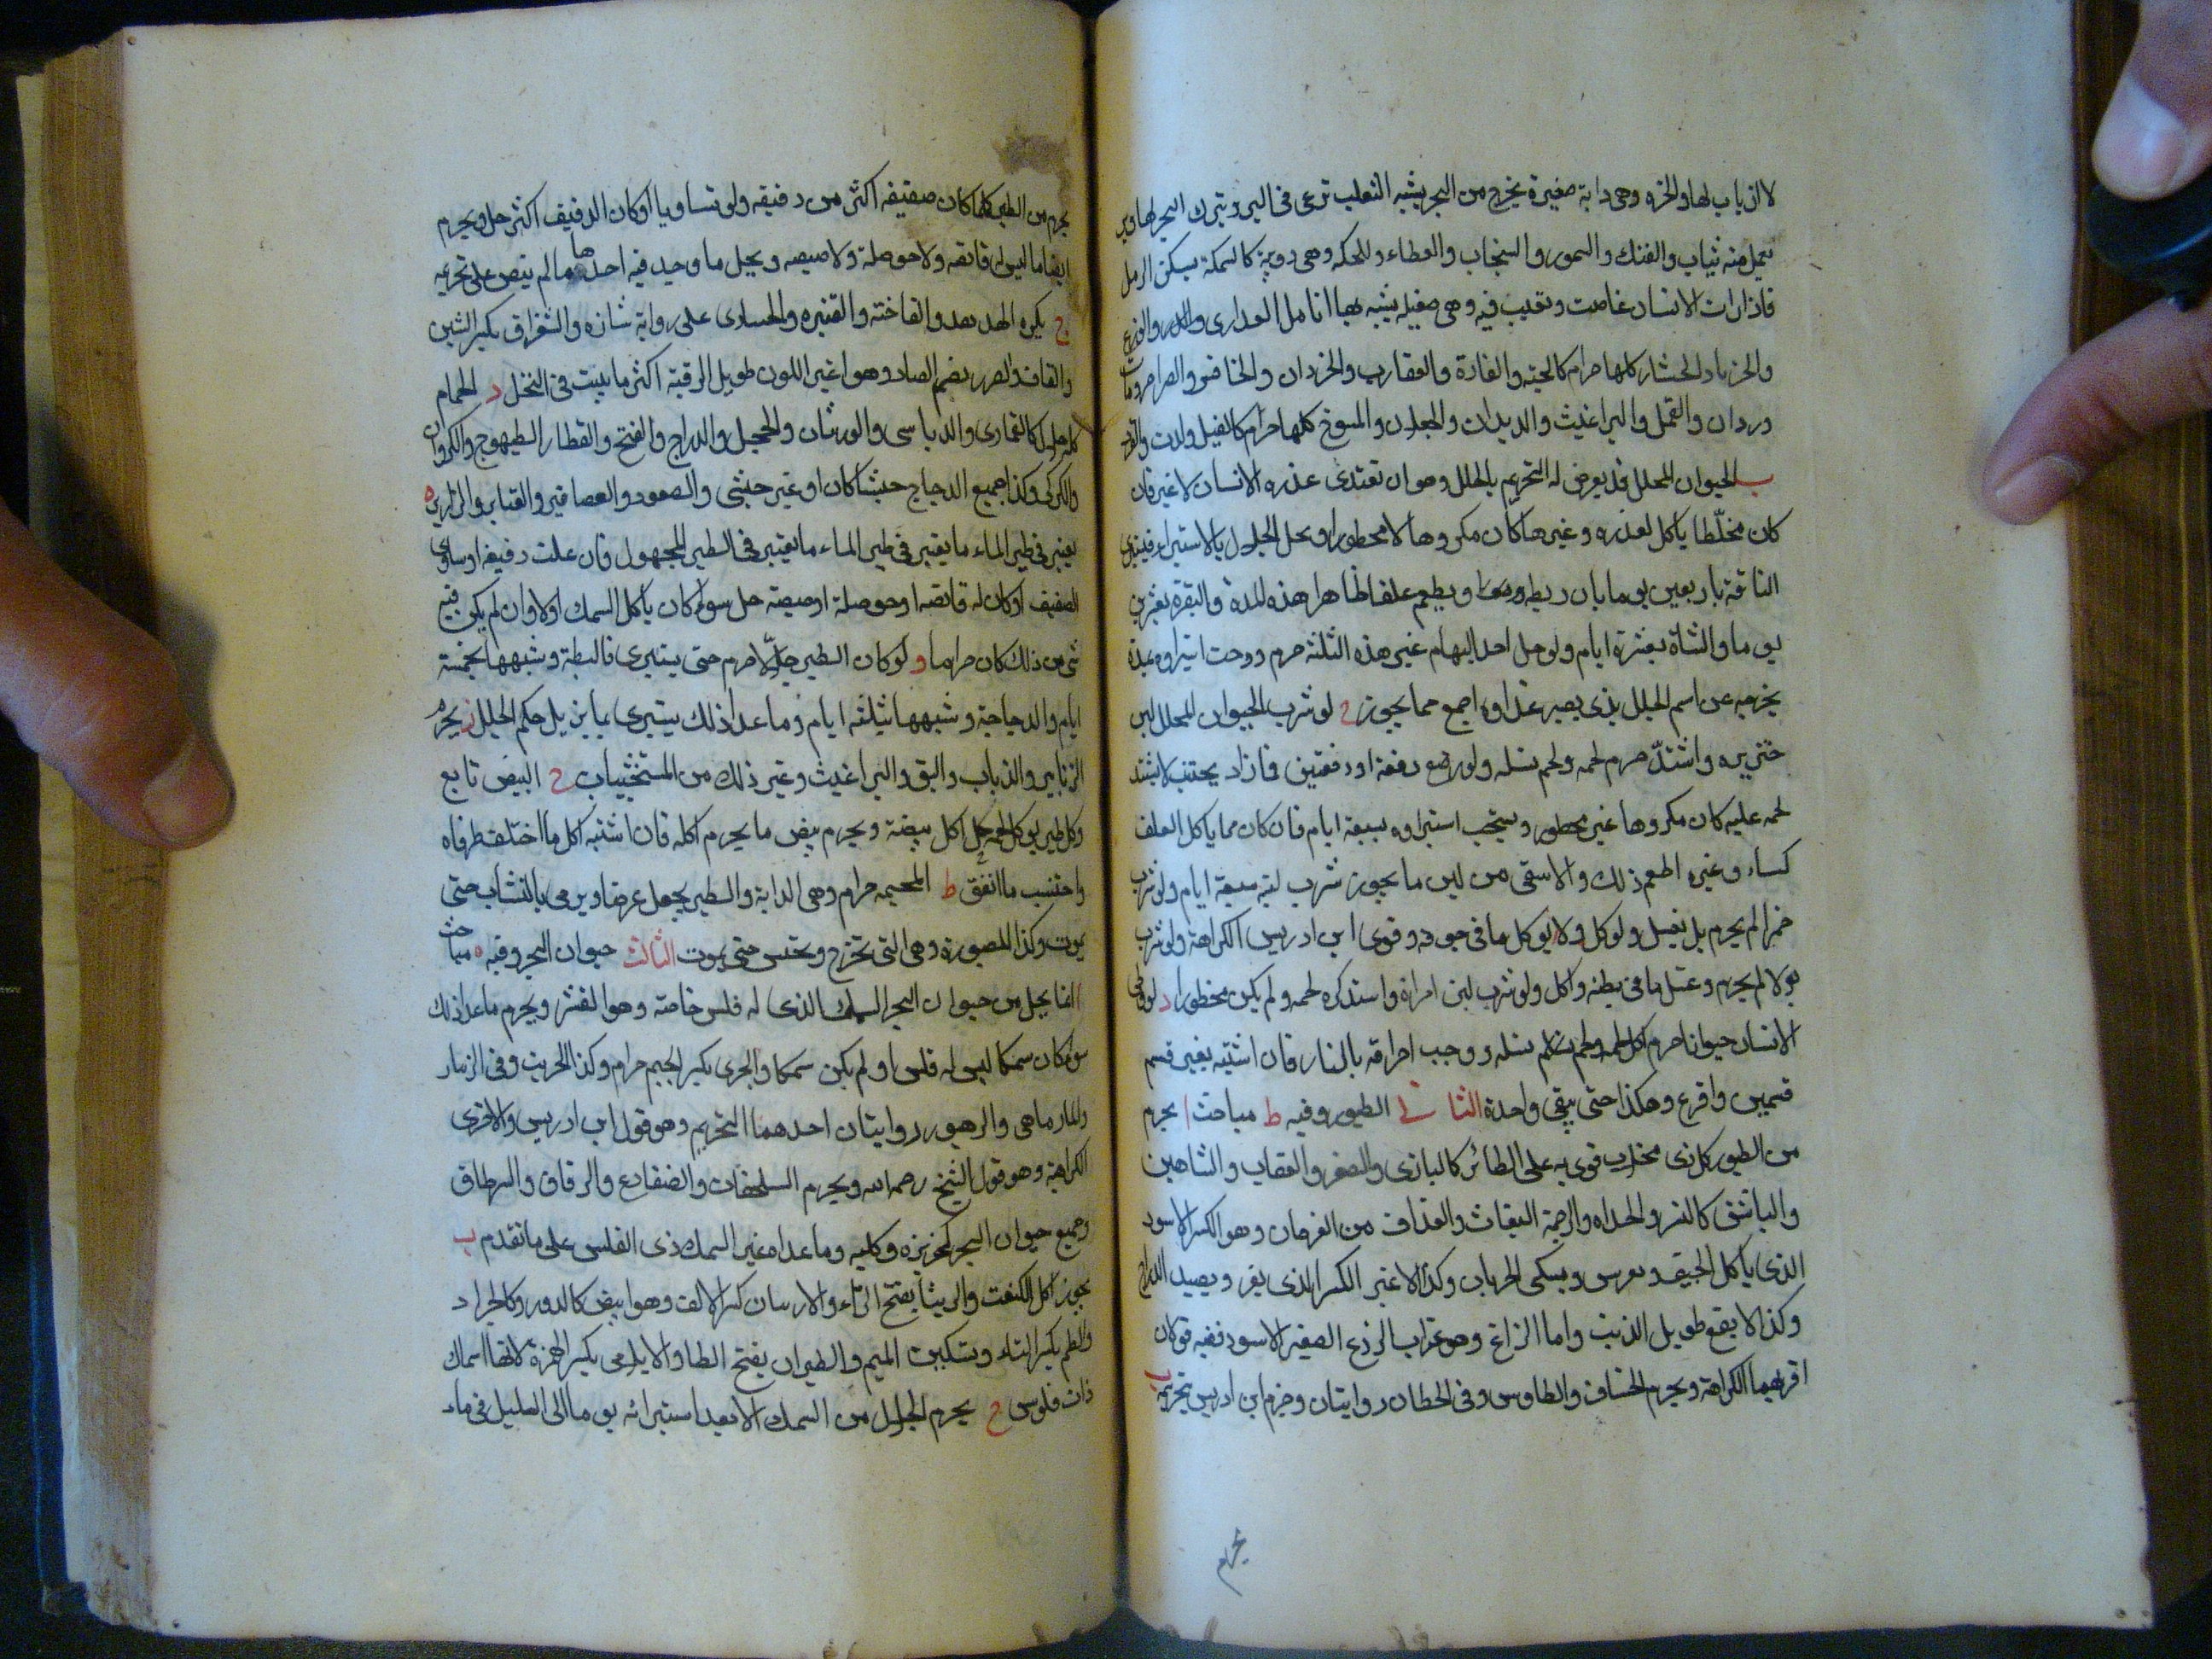 لا اذناب لها والخزه وهى دابة صغيرة يخرج من البحر يشبه الثعلب ترعى فى البر وتترك البحر لها وبر
يعمل منه ثياب والفنك والسمور والسنجاب والعطاء واللحكه وهى دويبة كالسمكة يسكن الرمل
فاذا رات الانسان غاصت وتغيب فيه وهى صقيله يشبه بها انامل العذارى والوزغ
والحشار كلها حرام كالحيه والفارة والعقارب والخردان والخنافس والصراصر وبنات
وردان والقمل والبراغيث والديدان والجعلان والمسوخ كلها حرام كالفيل والدب والقرد
ب الحيوان المحلل قد يعرض له التحريم بالجلل وهو ان تغتذى عذره الانسان لا غير فان
كان مخلّطا ياكل لعذره وغيرها كان مكروها لا محظورا ويحل الجلال بالاستبراء فيستبرى
الناقة باربعين يوما بان ربط ويطعم علفا طاهرا هذه المده والبقرة بعشرين
يوما والشاة بعشرة ايام ولو جل احد البهام غير هذه الثلثة حرم ووجب استبراوه بمدة
يخرجه عن اسم الجلل بذى يصير غذاوه اجمع مما يجوز ح لو شرب الحيوان المحلل لبن
خنزيره واشتدّ حرم لحمه ولحم نسله ولو رضع دفعة او دفعتين فازاد يحتنب لا يشتد
لحمه عليه كان مكروها غير محظور ويستحب استبراوه بسبعة ايام فان كان مما ياكل العلف
كساء وغيره اطعم ذلك والا سقى من لبن ما يجوز شرب لبنه سبعة ايام ولو شرب
خمرا لم يحرم بل يغسل ولو كل ولا يوكل ما فى جوفه وقوى ابن ادريس الكراهة ولو شرب
بولا لم يحرم وغسل ما فى بطنه واكل ولو شرب لبن امراة واشتد كره لحمه ولم يكن محظورا د لو وطى
الانسان حيوانا حرم اكل لحمه ولحم نسله ووجب احراقه بالنار فان اشتبه بغيره قسم
قسمين واقرع وهكذا حتى يبقى واحدة الثانى فى الطيور وفيه ط مباحث ا يحرم
من الطيور كل ذى مخلاب قوى به على الطائر كالبازى والصقر والعقاب والشاهين
والباشق كالنسر والحداه والرخمة البغاث والغداف من الغربان وهو الكبير الاسود
الذى ياكل الجيف ويفرس ويسكن الخربان وكذا الاغبر الكبير الذى يفر ويصيد الدراج
وكذا الابقع طويل الذنب واما الزاغ وهو غراب الزرع الصغير الاسود ففيه قولان
اقربهما الكراهة ويحرم الخشاف والطاوس وفى الخطاف روايتان وجزم ابن ادريس بتحريمه ب
يحرم
يحرم من الطير كلما كان صفيفه اكثر من دفيفه ولو تساويا او كان الدفيف اكثر حل ويحرم
ايضا ما ليس له قانصه ولا حوصلة ولا صيصه ويحل ما وجد فيه احدها ما لم ينص على تحريمه
ج يكره الهدهد والفاختة والقنبره والحبارى على رواية شاذه والشقراق بكسر الشين
والقاف والصرد بضم الصاد وهو اغبر اللون طويل الرقبة اكثر ما يبيت فى النخل د الحمام
كله حلال كالقمارى والدباسى والورشان والحجل والدراج والقبج والقطا والطيهوج والكروان
والكركى وكذا جميع الدجاج حبشيا كان او غير حبشى والصعود والعصافير والقنابر والزرازير ه
يعتبر فى طير الماء ما يعتبر فى طير الماء ما يعتبر فى الطير المجهول فان غلب دفيفه او ساوى
الصفيف او كان له قانصه او حوصلة او صيصة حل سواء كان ياكل السمك اولا وان لم يكن فيه
شى من ذلك كان حراما و لو كان الطير جلّالا حرم حتى يستبرى فالبطة وشبهها بخمسة
ايام والدجاجة وشبهها بثلثه ايام وما عدا ذلك يستبرى بما يزيل حكم الجلل ز يحرم
الزنابير والذباب والبق والبراغيث وغير ذلك من المستخبثات ح البيض تابع
وكل طير يوكل لحمه حل اكل بيضة ويحرم بيض ما يحرم اكله فان اشتبه اكل ما اختلف طرفاه
واجتنب ما اتفق ط المجثمه حرام وهى الدابة والطير يجعل غرضا ويرمى بالنشاب حتى
يموت وكذا المصبورة وهى التى تخرج وتحتبس حتى يموت الثالث حيوان البحر وفيه ه مباحث
ا انما يحل من حيوان البحر السمك الذى له فلس خاصة وهو القشر ويحرم ما عدا ذلك
سواء كان سمكا ليس له فلس او لم يكن سمكا والجرى بكسر الجيم حرام وكذا الجريث وفى الزمار
والمارماهى والزهو روايتان احدهما التحريم وهو قول ابن ادريس والاخرى
الكراهية وهو قول الشيخ رحمه الله ويحرم السلحفات والضفادع والرقاق والسرطان
وجميع حيوان البحر كخنزيره وكلبه وما عداه غير السمك ذى الفلس على ما تقدم ب
يجوز اكل الكنعت والربيثا بفتح الراء والاربيان بكسر الالف وهو ابيض كالدود وكالجراد
والطمر بكسر الطاء وتسكين الميم والطبران بفتح الطا والابلامى بكسر الهمزة لانها اسماك
ذات فلوس ج يحرم الجلال من السمك الا بعد استبرائه يوما الى الليل فى ماء